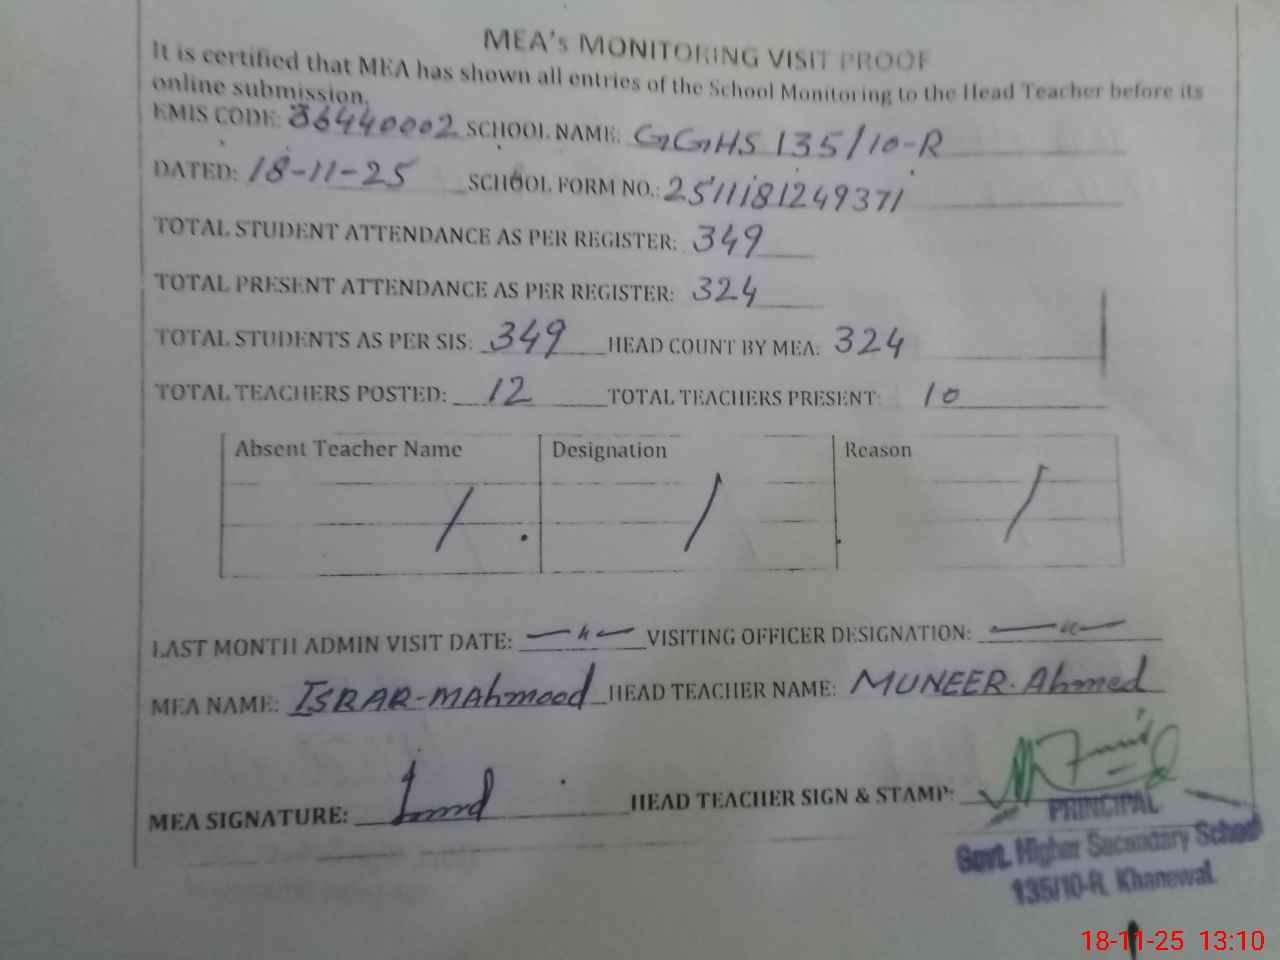 MEA's MONITORING VISIT PROOF
It is certified that MEA has shown all entries of the School Monitoring to the Head Teacher before its
online submission.
EMIS CODE: 36440002 SCHOOL NAME: GGHS 135/10-R
DATED: 18-11-25 SCHOOL FORM NO.: 2511181249371
TOTAL STUDENT ATTENDANCE AS PER REGISTER: 349
TOTAL PRESENT ATTENDANCE AS PER REGISTER: 324
TOTAL STUDENTS AS PER SIS: 349 HEAD COUNT BY MEA: 324
TOTAL TEACHERS POSTED: 12 TOTAL TEACHERS PRESENT: 10
Absent Teacher Name Designation Reason
/ / /
LAST MONTH ADMIN VISIT DATE: —"— VISITING OFFICER DESIGNATION: —"—
MEA NAME: ISRAR-MAhmood HEAD TEACHER NAME: MUNEER-Ahmed
MEA SIGNATURE: HEAD TEACHER SIGN & STAMP:
PRINCIPAL
Govt. Higher Secondary School
135/10-R, Khanewal.
18-11-25 13:10